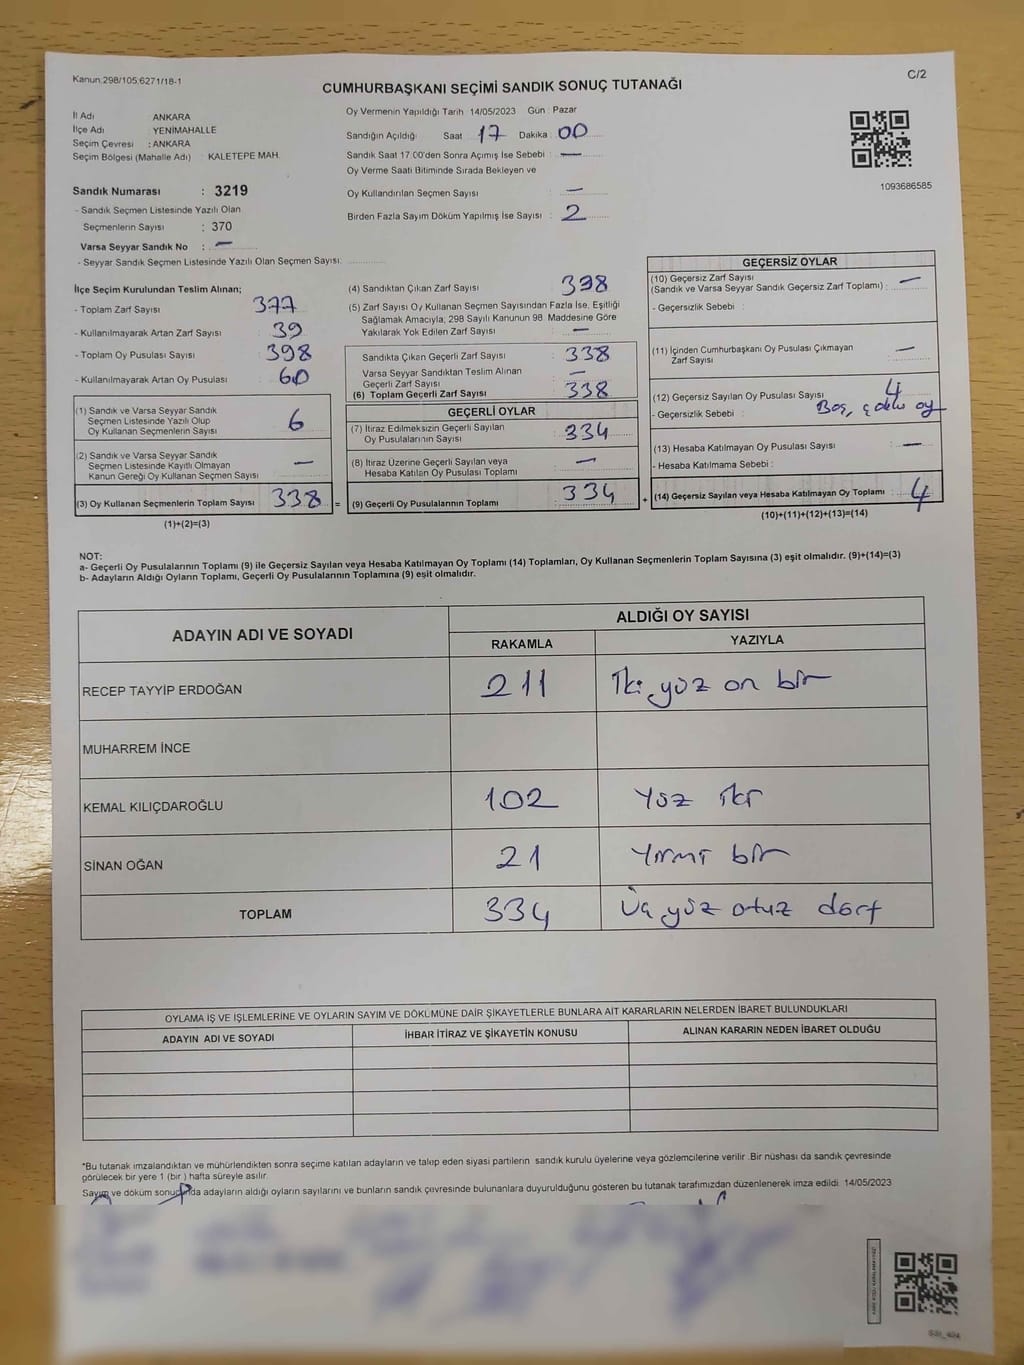 Kanun:298/105;6271/18-1
C/2
CUMHURBAŞKANI SEÇİMİ SANDIK SONUÇ TUTANAĞI
İl Adı ANKARA
İlçe Adı YENİMAHALLE
Seçim Çevresi : ANKARA
Seçim Bölgesi (Mahalle Adı) : KALETEPE MAH.
Sandık Numarası : 3219
- Sandık Seçmen Listesinde Yazılı Olan
Seçmenlerin Sayısı : 370
Varsa Seyyar Sandık No : —
- Seyyar Sandık Seçmen Listesinde Yazılı Olan Seçmen Sayısı:
Oy Vermenin Yapıldığı Tarih 14/05/2023 Gün : Pazar
Sandığın Açıldığı Saat 17 Dakika 00
Sandık Saat 17:00'den Sonra Açımış İse Sebebi : —
Oy Verme Saati Bitiminde Sırada Bekleyen ve
Oy Kullandırılan Seçmen Sayısı : —
Birden Fazla Sayım Döküm Yapılmış İse Sayısı : 2
1093686585
İlçe Seçim Kurulundan Teslim Alınan;
- Toplam Zarf Sayısı : 377
- Kullanılmayarak Artan Zarf Sayısı : 39
- Toplam Oy Pusulası Sayısı : 398
- Kullanılmayarak Artan Oy Pusulası : 60
(1) Sandık ve Varsa Seyyar Sandık
Seçmen Listesinde Yazılı Olup
Oy Kullanan Seçmenlerin Sayısı : 6
(2) Sandık ve Varsa Seyyar Sandık
Seçmen Listesinde Kayıtlı Olmayan
Kanun Gereği Oy Kullanan Seçmen Sayısı : —
(3) Oy Kullanan Seçmenlerin Toplam Sayısı : 338 =
(1)+(2)=(3)
(4) Sandıktan Çıkan Zarf Sayısı : 398
(5) Zarf Sayısı Oy Kullanan Seçmen Sayısından Fazla İse, Eşitliği
Sağlamak Amacıyla; 298 Sayılı Kanunun 98. Maddesine Göre
Yakılarak Yok Edilen Zarf Sayısı : —
Sandıkta Çıkan Geçerli Zarf Sayısı : 338
Varsa Seyyar Sandıktan Teslim Alınan
Geçerli Zarf Sayısı : —
(6) Toplam Geçerli Zarf Sayısı : 338
GEÇERLİ OYLAR
(7) İtiraz Edilmeksizin Geçerli Sayılan
Oy Pusulalarının Sayısı : 334
(8) İtiraz Üzerine Geçerli Sayılan veya
Hesaba Katılan Oy Pusulası Toplamı : —
(9) Geçerli Oy Pusulalarının Toplamı : 334 +
GEÇERSİZ OYLAR
(10) Geçersiz Zarf Sayısı
(Sandık ve Varsa Seyyar Sandık Geçersiz Zarf Toplamı) : —
- Geçersizlik Sebebi :
(11) İçinden Cumhurbaşkanı Oy Pusulası Çıkmayan
Zarf Sayısı : —
(12) Geçersiz Sayılan Oy Pusulası Sayısı : 4
- Geçersizlik Sebebi : Boş, oy
(13) Hesaba Katılmayan Oy Pusulası Sayısı : —
- Hesaba Katılmama Sebebi :
(14) Geçersiz Sayılan veya Hesaba Katılmayan Oy Toplamı : 4
(10)+(11)+(12)+(13)=(14)
NOT:
a- Geçerli Oy Pusulalarının Toplamı (9) ile Geçersiz Sayılan veya Hesaba Katılmayan Oy Toplamı (14) Toplamları, Oy Kullanan Seçmenlerin Toplam Sayısına (3) eşit olmalıdır. (9)+(14)=(3)
b- Adayların Aldığı Oyların Toplamı, Geçerli Oy Pusulalarının Toplamına (9) eşit olmalıdır.
ADAYIN ADI VE SOYADI
ALDIĞI OY SAYISI
RAKAMLA YAZIYLA
RECEP TAYYİP ERDOĞAN 211 İki yüz on bir
MUHARREM İNCE
KEMAL KILIÇDAROĞLU 102 Yüz iki
SİNAN OĞAN 21 Yirmi bir
TOPLAM 334 Üç yüz otuz dört
OYLAMA İŞ VE İŞLEMLERİNE VE OYLARIN SAYIM VE DÖKÜMÜNE DAİR ŞİKAYETLERLE BUNLARA AİT KARARLARIN NELERDEN İBARET BULUNDUKLARI
ADAYIN ADI VE SOYADI İHBAR İTİRAZ VE ŞİKAYETİN KONUSU ALINAN KARARIN NEDEN İBARET OLDUĞU
*Bu tutanak imzalandıktan ve mühürlendikten sonra seçime katılan adayların ve talep eden siyasi partilerin sandık kurulu üyelerine veya gözlemcilerine verilir .Bir nüshası da sandık çevresinde
görülecek bir yere 1 (bir ) hafta süreyle asılır.
Sayım ve döküm sonucunda adayların aldığı oyların sayılarını ve bunların sandık çevresinde bulunanlara duyurulduğunu gösteren bu tutanak tarafımızdan düzenlenerek imza edildi. 14/05/2023